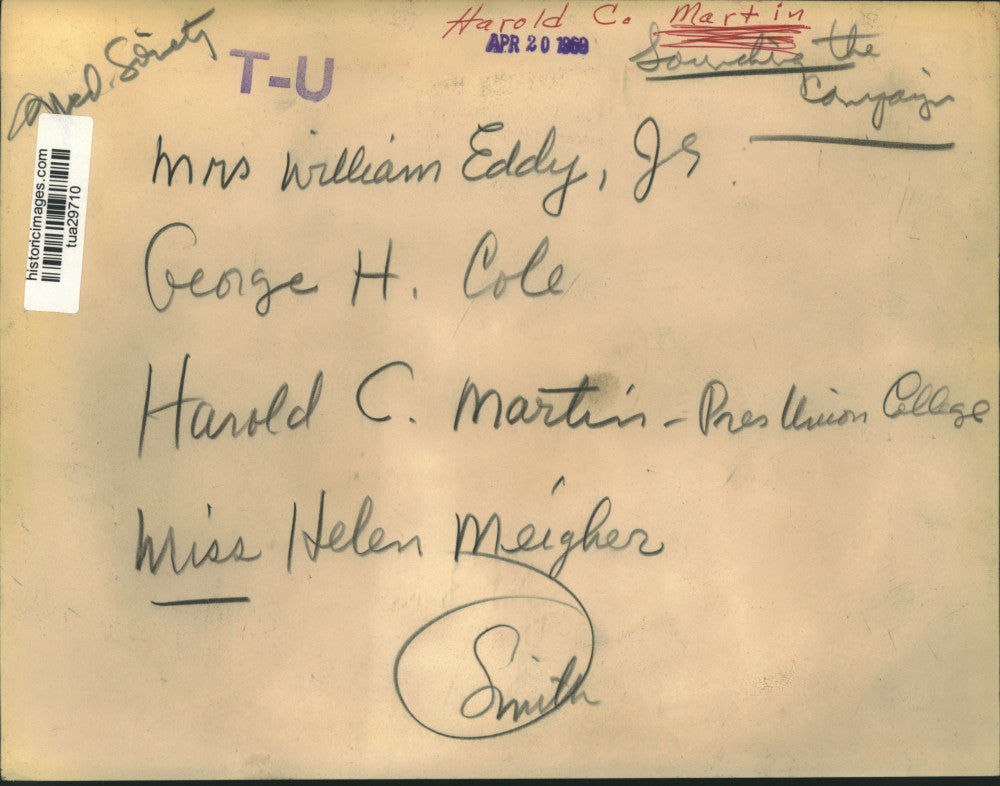 Harold C. Martin
APR 20 1969
T-U
Society
the
Campaign
historicimages.com
tua29710
Mrs William Eddy, Jr.
George H. Cole
Harold C. Martin - Pres Union College
Miss Helen Meigher
Smith